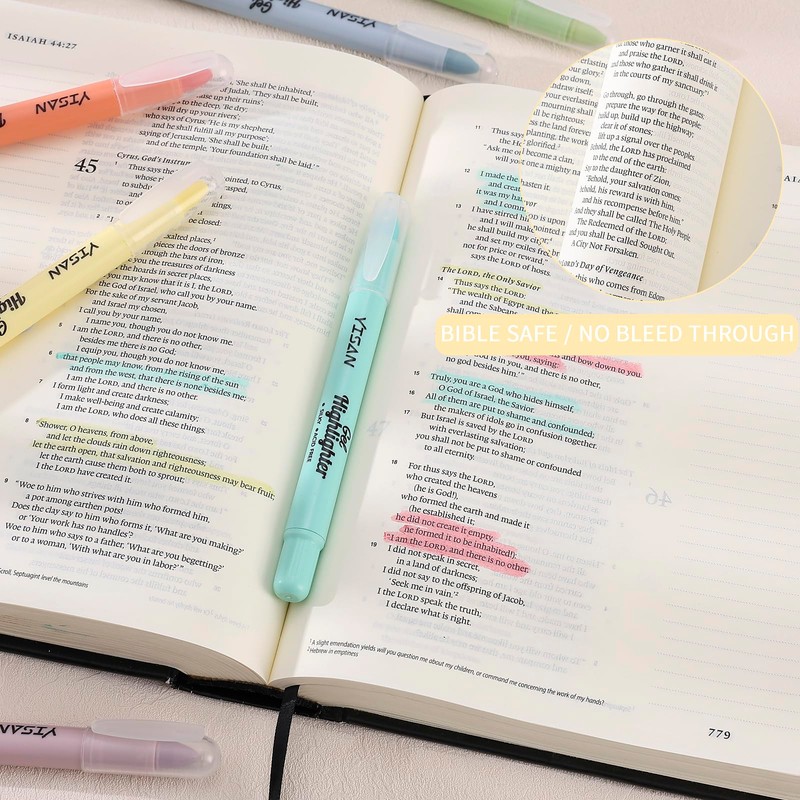 ISAIAH 44:27
YISAN
Gel
YISAN
'She shall be inhabited,'
of Judah, 'They shall be built,
raise up their ruins';
to the deep, 'Be dry;
will dry up your rivers';
who says of Cyrus, 'He is my shepherd,
and he shall fulfill all my purpose';
saying of Jerusalem, 'She shall be built,'
and of the temple, 'Your foundation shall be laid.'"
45
Cyrus, God's
1 Thus says the
pointed, to Cyrus,
whose
kings,
be closed:
2
exalted places,
pieces the doors of bronze
the bars of iron,
you the treasures of darkness
the hoards in secret places,
you may know that it is I, the LORD,
the God of Israel, who call you by your name.
For the sake of my servant Jacob,
and Israel my chosen,
I call you by your name,
I name you, though you do not know me.
5 I am the LORD, and there is no other,
besides me there is no God;
I equip you, though you do not know me,
6 that people may know, from the rising of the sun
and from the west, that there is none besides me;
I am the LORD, and there is no other.
7 I form light and create darkness;
I make well-being and create calamity;
I am the LORD, who does all these things.
8 "Shower, O heavens, from above,
and let the clouds rain down righteousness;
let the earth open, that salvation and righteousness may bear fruit;
let the earth cause them both to sprout;
I the LORD have created it.
9 "Woe to him who strives with him who formed him,
a pot among earthen pots!
Does the clay say to him who forms it, 'What are you making?'
or 'Your work has no handles'?
Woe to him who says to a father, 'What are you begetting?'
or to a woman, 'With what are you in labor?'"
Scroll, Septuagint level the mountains
YISAN
YISAN
Gel
Highlighter
SILKY • ACID FREE
YISAN
11 Thus says
12 I made the
hasten it.
and
it was my
13 I have stirred
and I will make
he shall build my city
and set my exiles free
not for price or reward,"
says the LORD of hosts.
The LORD, the Only Savior
14 Thus says the LORD:
"The wealth of Egypt and
and the Sabeans,
and bow down to you.
is in you, and there is no other,
no god besides him.'"
15 Truly, you are a God who hides himself,
O God of Israel, the Savior.
16 All of them are put to shame and confounded;
the makers of idols go in confusion together.
17 But Israel is saved by the LORD
with everlasting salvation;
you shall not be put to shame or confounded
to all eternity.
18 For thus says the LORD,
who created the heavens
(he is God!),
who formed the earth and made it
(he established it;
he did not create it empty,
he formed it to be inhabited!):
"I am the LORD, and there is no other.
19 I did not speak in secret,
in a land of darkness;
I did not say to the offspring of Jacob,
'Seek me in vain.'
I the LORD speak the truth;
I declare what is right.
1 A slight emendation yields will you question me about my children, or command me concerning the work of my hands?
2 Hebrew in emptiness
779
those who garner it shall eat it
and praise the LORD,
and those who gather it shall drink it
in the courts of my sanctuary."
Go through, go through the gates;
prepare the way for the people;
build up, build up the highway;
clear it of stones;
lift up a signal over the peoples.
Behold, the LORD has proclaimed
to the end of the earth:
Say to the daughter of Zion,
"Behold, your salvation comes;
behold, his reward is with him,
and his recompense before him."
And they shall be called The Holy People,
The Redeemed of the LORD;
and you shall be called Sought Out,
A City Not Forsaken.
LORD's Day of Vengeance
this who comes from Edom,
BIBLE SAFE / NO BLEED THROUGH